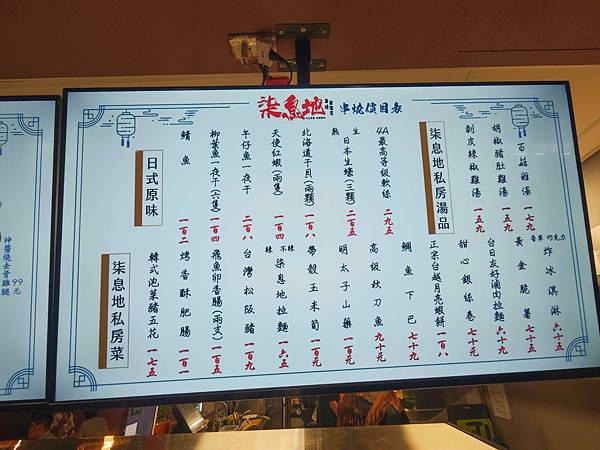 柒息地 串燒價目表
柒息地私房湯品
百菇雞湯 一七九
胡椒豬肚雞湯 一五九
剝皮辣椒雞湯 一五九
4A最高等級軟絲 二九五
熟 生
日本生蠔(三顆) 二百五
北海道干貝(兩顆) 一百八
天使紅蝦(兩隻) 一百四
午仔魚一夜干 二百八
柳葉魚一夜干(六隻) 一百四
鯖魚 一百二
日式原味
香草 巧克力
炸冰淇淋 六十五
黃金脆薯 七十五
台日友好滷肉拉麵 六十九
甜心銀絲卷 七十元
正宗台越月亮蝦餅 一百八
鯛魚下巴 七十九
高級秋刀魚 九十元
明太子山藥 一百元
帶殼玉米筍 一百元
辣 不辣
柒息地拉麵 一六五
台灣松阪豬 一百九
飛魚卵香腸(兩支) 一百五
烤香酥肥腸 一百一
韓式泡菜豬五花 一七五
柒息地私房菜
神醬燒去骨雞腿 99元